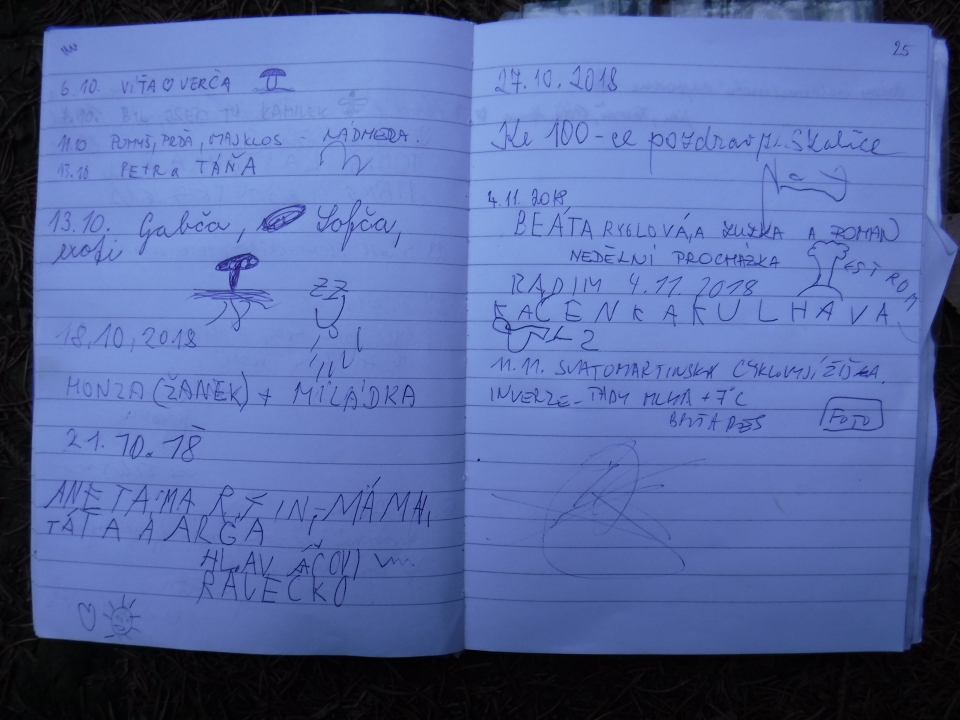 6.10. VÍŤA ♡ VERČA
BYL JSEM TU KAMNEK
11.10 MAJKLOS - NÁDHERA.
15.10 PETR a TÁŇA
13.10. Gabča, Sofča,
18.10.2018
HONZA (ŽANEK) + MILÁDKA
21.10.18
ANETA, MARTIN, MÁMA,
TÁTA A ARGA
HLAVÁČOVI
RÁČEČKO
25
27.10.2018
Ke 100-ce pozdrav z Skalice
4.11.2018,
BEÁTA RYGLOVÁ, A ZUZKA A ROMAN
NEDĚLNÍ PROCHÁZKA
RADIM 4.11.2018
KAČENKA KULHAVA
11.11. SVATOMARTINSKÁ
INVERZE - TADY MLHA + 7°C
FOTO